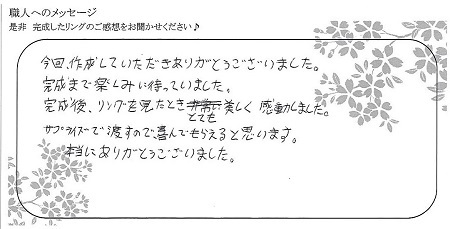 職人へのメッセージ
是非 完成したリングのご感想をお聞かせください♪
今回、作成していただきありがとうございました。
完成まで楽しみに待っていました。
完成後、リングを見たとき非常に美しく 感動しました。
とても
サプライズで渡すので喜んでもらえると思います。
本当にありがとうございました。